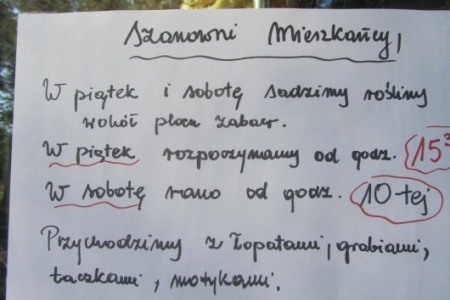 Szanowni Mieszkańcy,
W piątek i sobotę sadzimy rośliny
wokół placu zabaw.
W piątek rozpoczynamy od godz. 15³
W sobotę rano od godz. 10-tej
Przychodzimy z łopatami, grabiami,
taczkami, motykami.